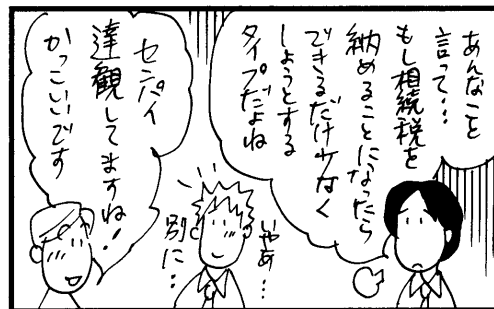 あんなこと
言って…
もし相続税を
納めることになったら
できるだけ少なく
しようとする
タイプだよね
いやぁ…
別に…
センパイ
達観してますね!
かっこいいです